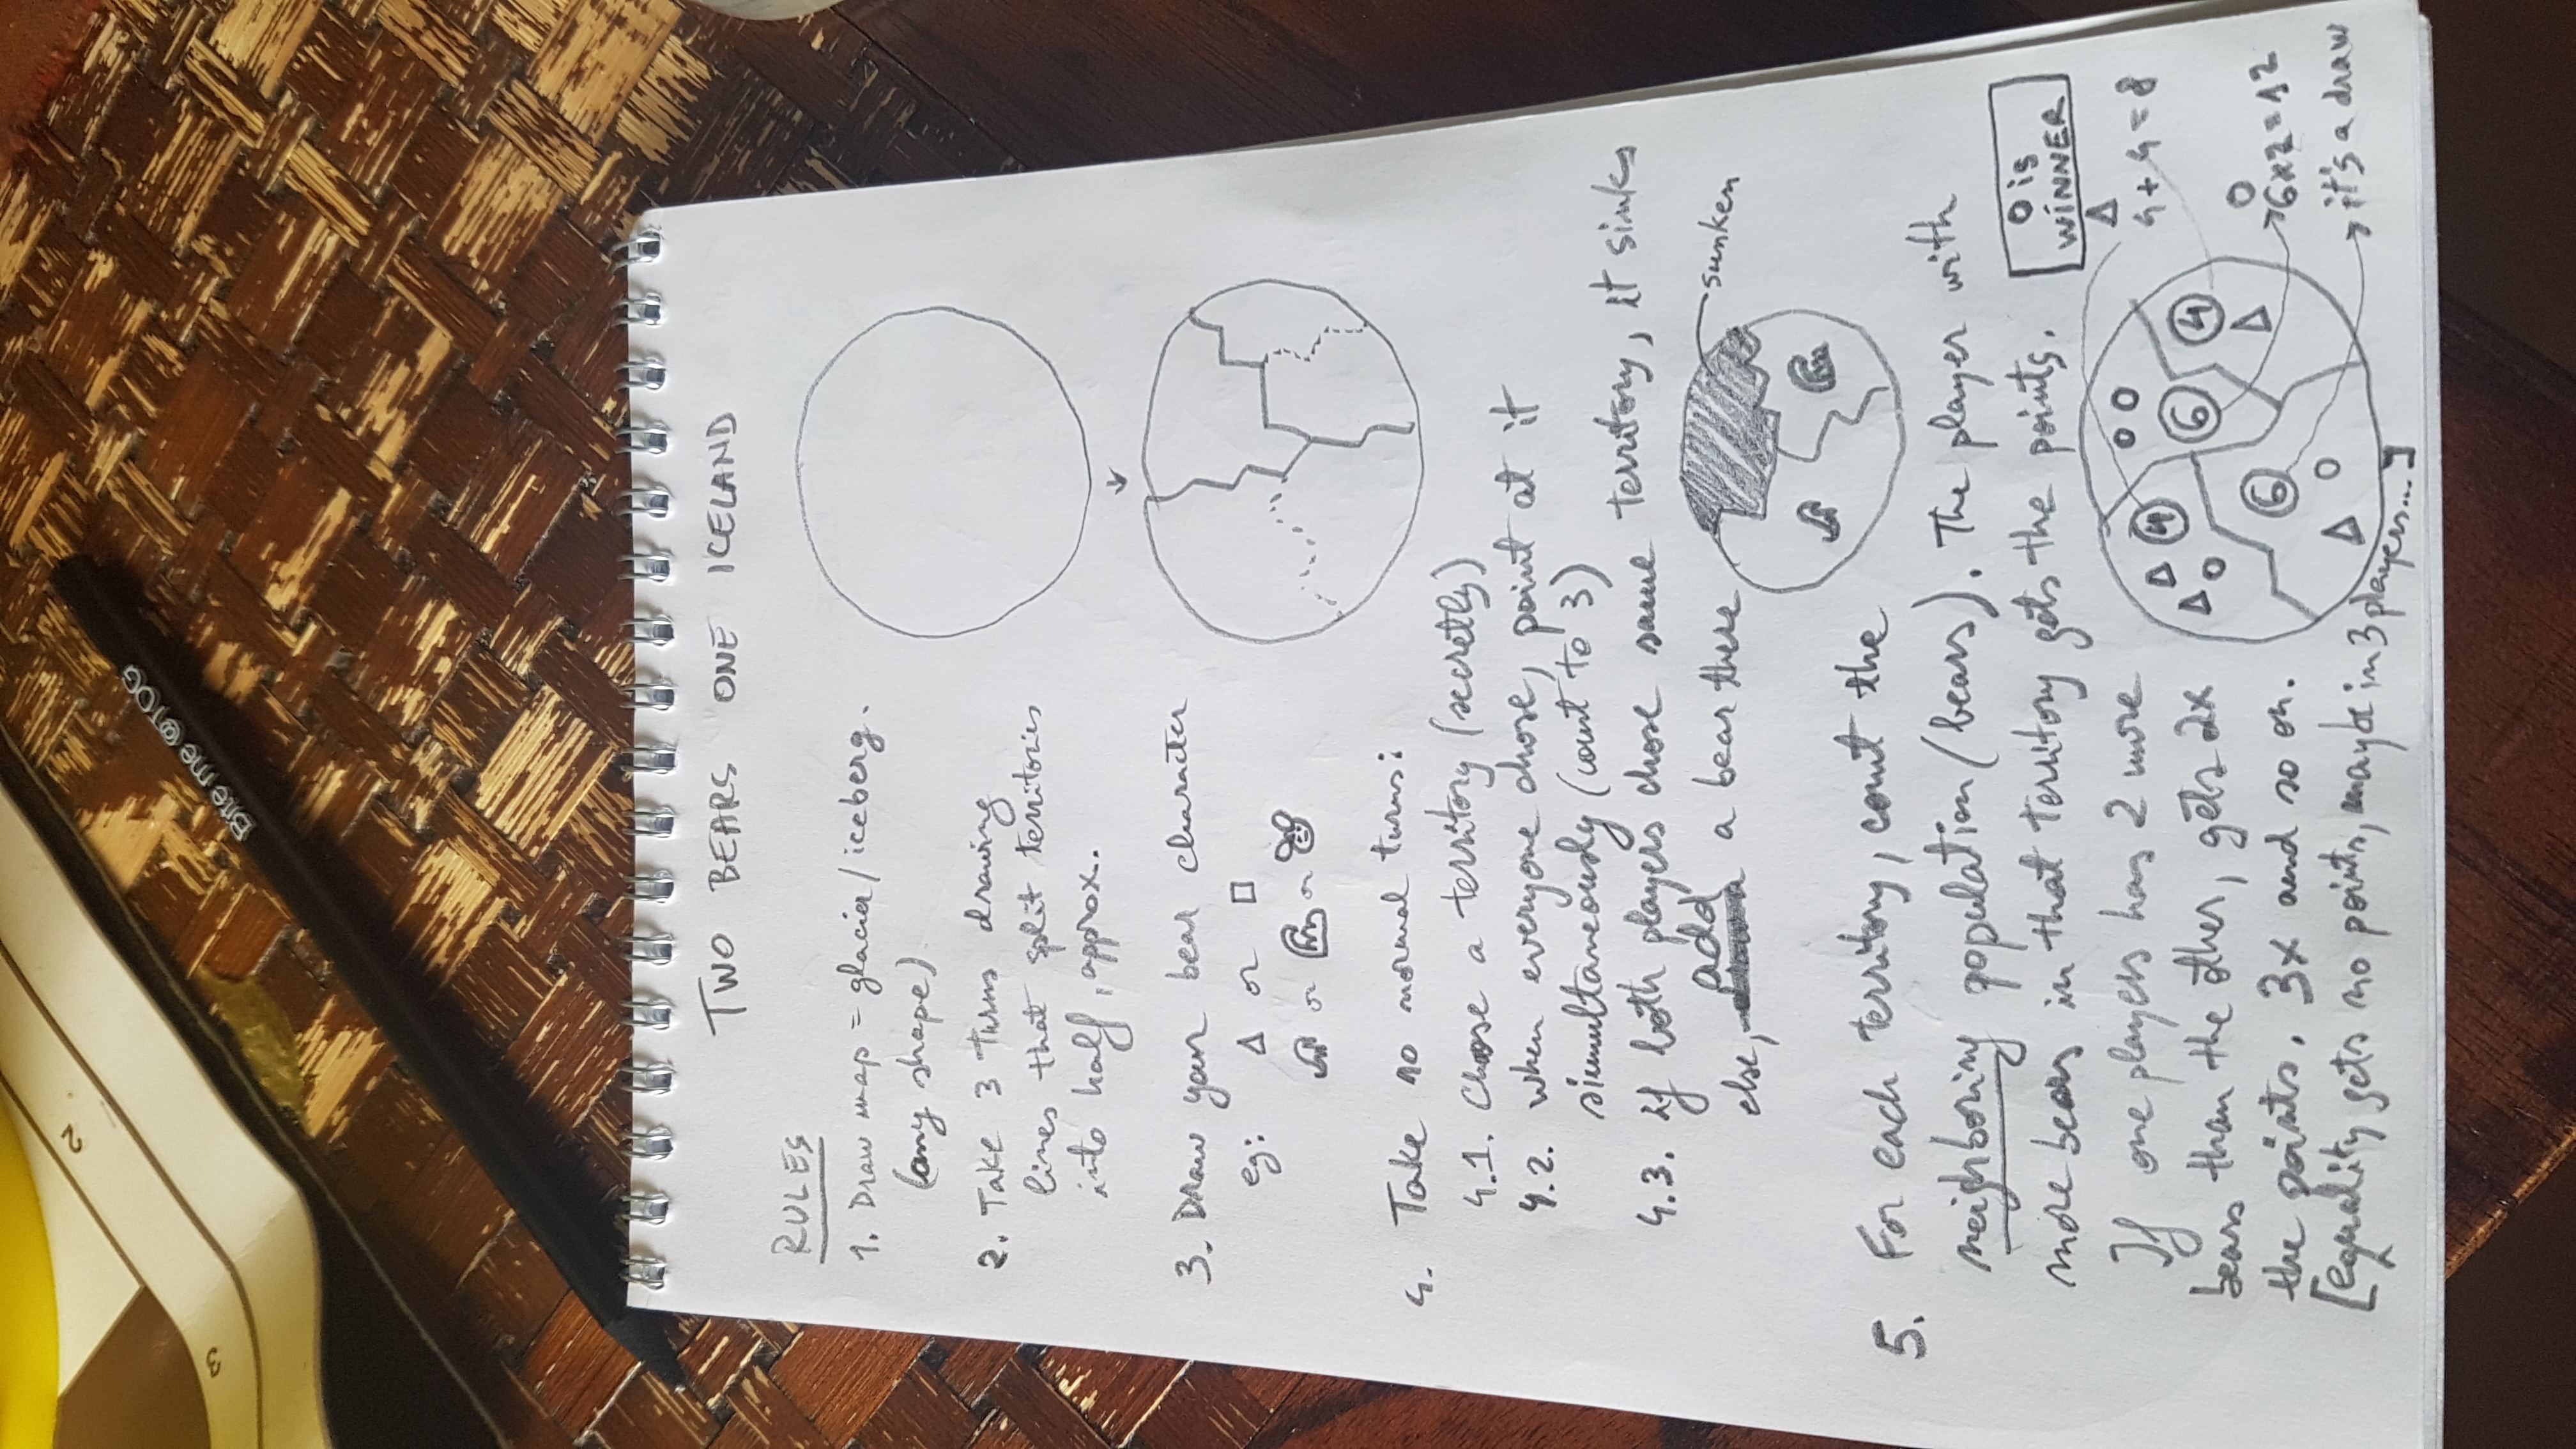 TWO BEARS ONE ICELAND
RULES
1. Draw map = glacier/iceberg.
(any shape)
2. Take 3 turns drawing
lines that split territories
into half, approx.
3. Draw your bear character
eg: △ or □
or or
4. Take 10 normal turns:
4.1. Choose a territory (secretly)
4.2. when everyone chose, point at it
simultaneously (count to 3)
4.3. if both players chose same territory, it sinks
else, add a bear there
sunken
5. For each territory, count the
neighboring population (bears). The player with
more bears in that territory gets the points.
If one players has 2 more
bears than the other, gets 2x
the points. 3x and so on.
[equality gets no points, maybe in 3 players...]
O is
WINNER
△
4+4=8
O
6x2=12
it's a draw
4
6
4
6
Bite me @TOG
2
3